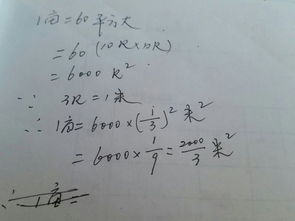 1亩=60平方丈
=60(10R×10R)
=6000R²
∵ 3R=1米
∴ 1亩=6000×(1/3)²米²
=6000×1/9=2000/3米²